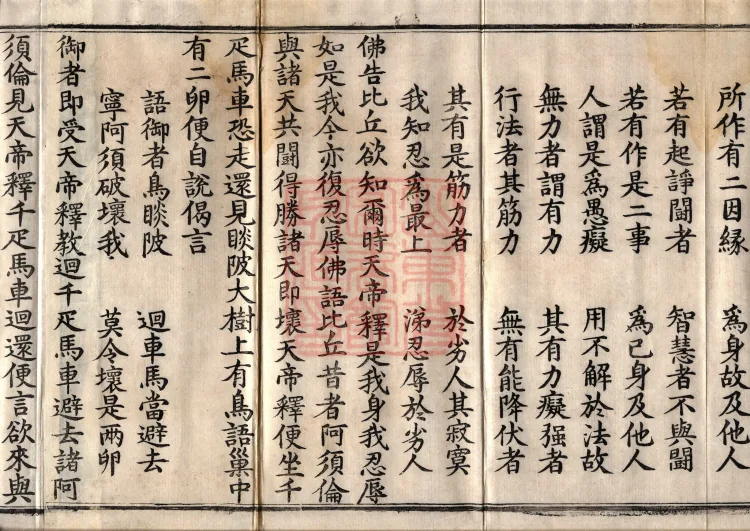 所作有二因緣　為身故及他人
若有起諍鬪者　智慧者不與鬪
若有作是二事　為己身及他人
人謂是為愚癡　用不解於法故
無力者謂有力　其有力癡强者
行法者其筋力　無有能降伏者
其有是筋力者　於劣人其寂寞
我知忍為最上　常忍辱於劣人
佛告比丘欲知爾時天帝釋是我身我忍辱
如是我今亦復忍辱佛語比丘昔者阿須倫
與諸天共鬪得勝諸天即壞天帝釋便坐千
疋馬車恐走還見睒陂大樹上有鳥語巢中
有二卵便自說偈言
語御者鳥睒陂　迴車馬當避去
寧阿須破壞我　莫令壞是兩卵
御者即受天帝釋教迴千疋馬車避去諸阿
須倫見天帝釋千疋馬車迴還便言欲來與